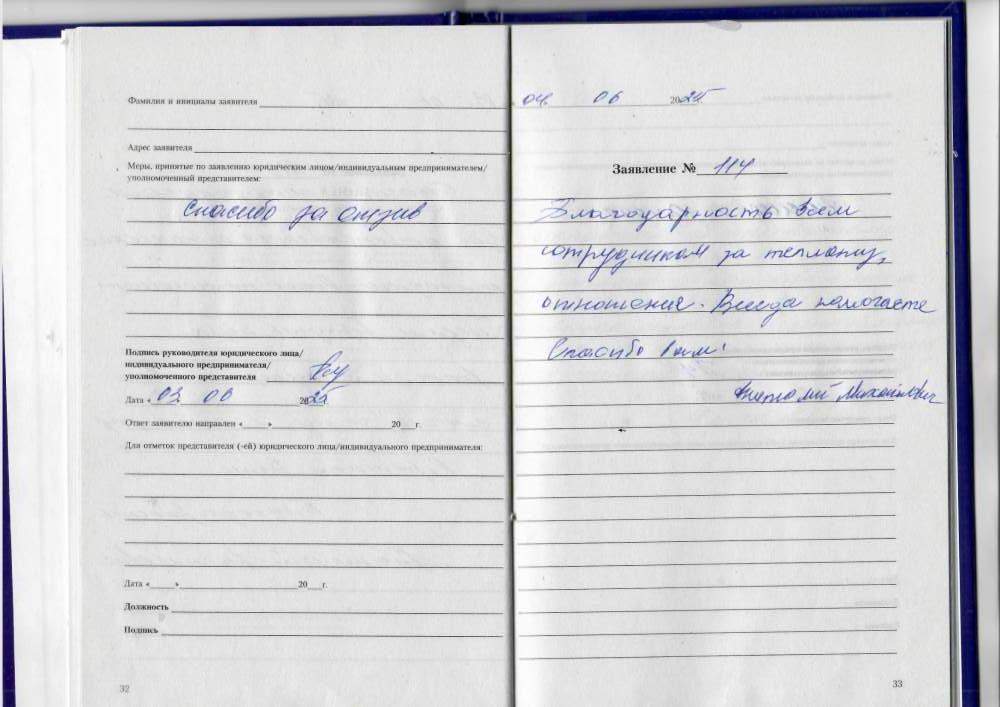 Фамилия и инициалы заявителя
Адрес заявителя
Меры, принятые по заявлению юридическим лицом/индивидуальным предпринимателем/
уполномоченный представителем:
Спасибо за отзыв
Подпись руководителя юридического лица/
индивидуального предпринимателя/
уполномоченного представителя
Дата « 03 06 2025
Ответ заявителю направлен «____» 20__г.
Для отметок представителя (-ей) юридического лица/индивидуального предпринимателя:
Дата «____» 20__г.
Должность
Подпись
32
04 06 2025
Заявление № 114
Благодарность всем
сотрудникам за теплоту,
отношения. Всегда помогаете
Спасибо Вам!
Анатолий Михайлович
33